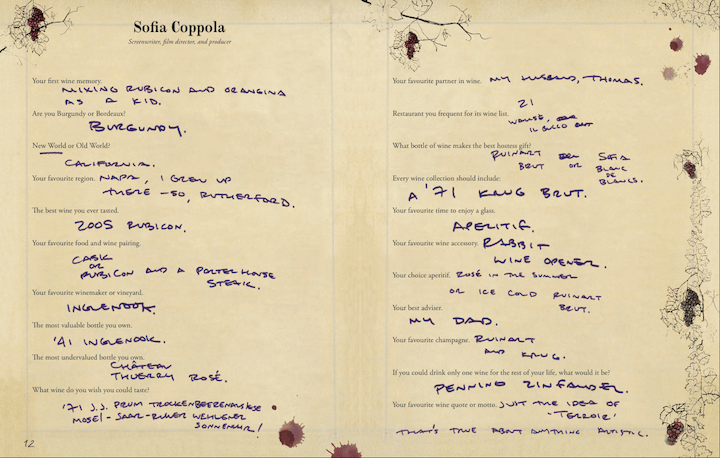 Sofia Coppola
Screenwriter, film director, and producer
Your first wine memory.
MIXING RUBICON AND ORANGINA
AS A KID.
Are you Burgundy or Bordeaux?
BURGUNDY.
New World or Old World?
CALIFORNIA.
Your favourite region. NAPA, I GREW UP
THERE - SO, RUTHERFORD.
The best wine you ever tasted.
2005 RUBICON.
Your favourite food and wine pairing.
CASK
OR
RUBICON AND A PORTERHOUSE
STEAK.
Your favourite winemaker or vineyard.
INGLENOOK.
The most valuable bottle you own.
'41 INGLENOOK.
The most undervalued bottle you own.
CHÂTEAU
THUERRY ROSÉ.
What wine do you wish you could taste?
'71 J.J. PRUM TROCKENBEERENAUSLESE
MOSEL - SAAR - RUWER WEHLENER
SONNENUHR!
12
Your favourite partner in wine. MY HUSBAND, THOMAS.
21
Restaurant you frequent for its wine list.
IL BUCO OUT
What bottle of wine makes the best hostess gift?
RUINART SOFIA
BRUT OR BLANC
DE
BLANCS.
Every wine collection should include:
A '71 KRUG BRUT.
Your favourite time to enjoy a glass.
APERITIF.
Your favourite wine accessory. RABBIT
WINE OPENER.
Your choice aperitif. ROSÉ IN THE SUMMER
OR ICE COLD RUINART
BRUT.
Your best adviser.
MY DAD.
Your favourite champagne. RUINART
AND KRUG.
If you could drink only one wine for the rest of your life, what would it be?
PENNINO ZINFANDEL.
Your favourite wine quote or motto. JUST THE IDEA OF
'TERROIR'
THAT'S TRUE ABOUT ANYTHING ARTISTIC.